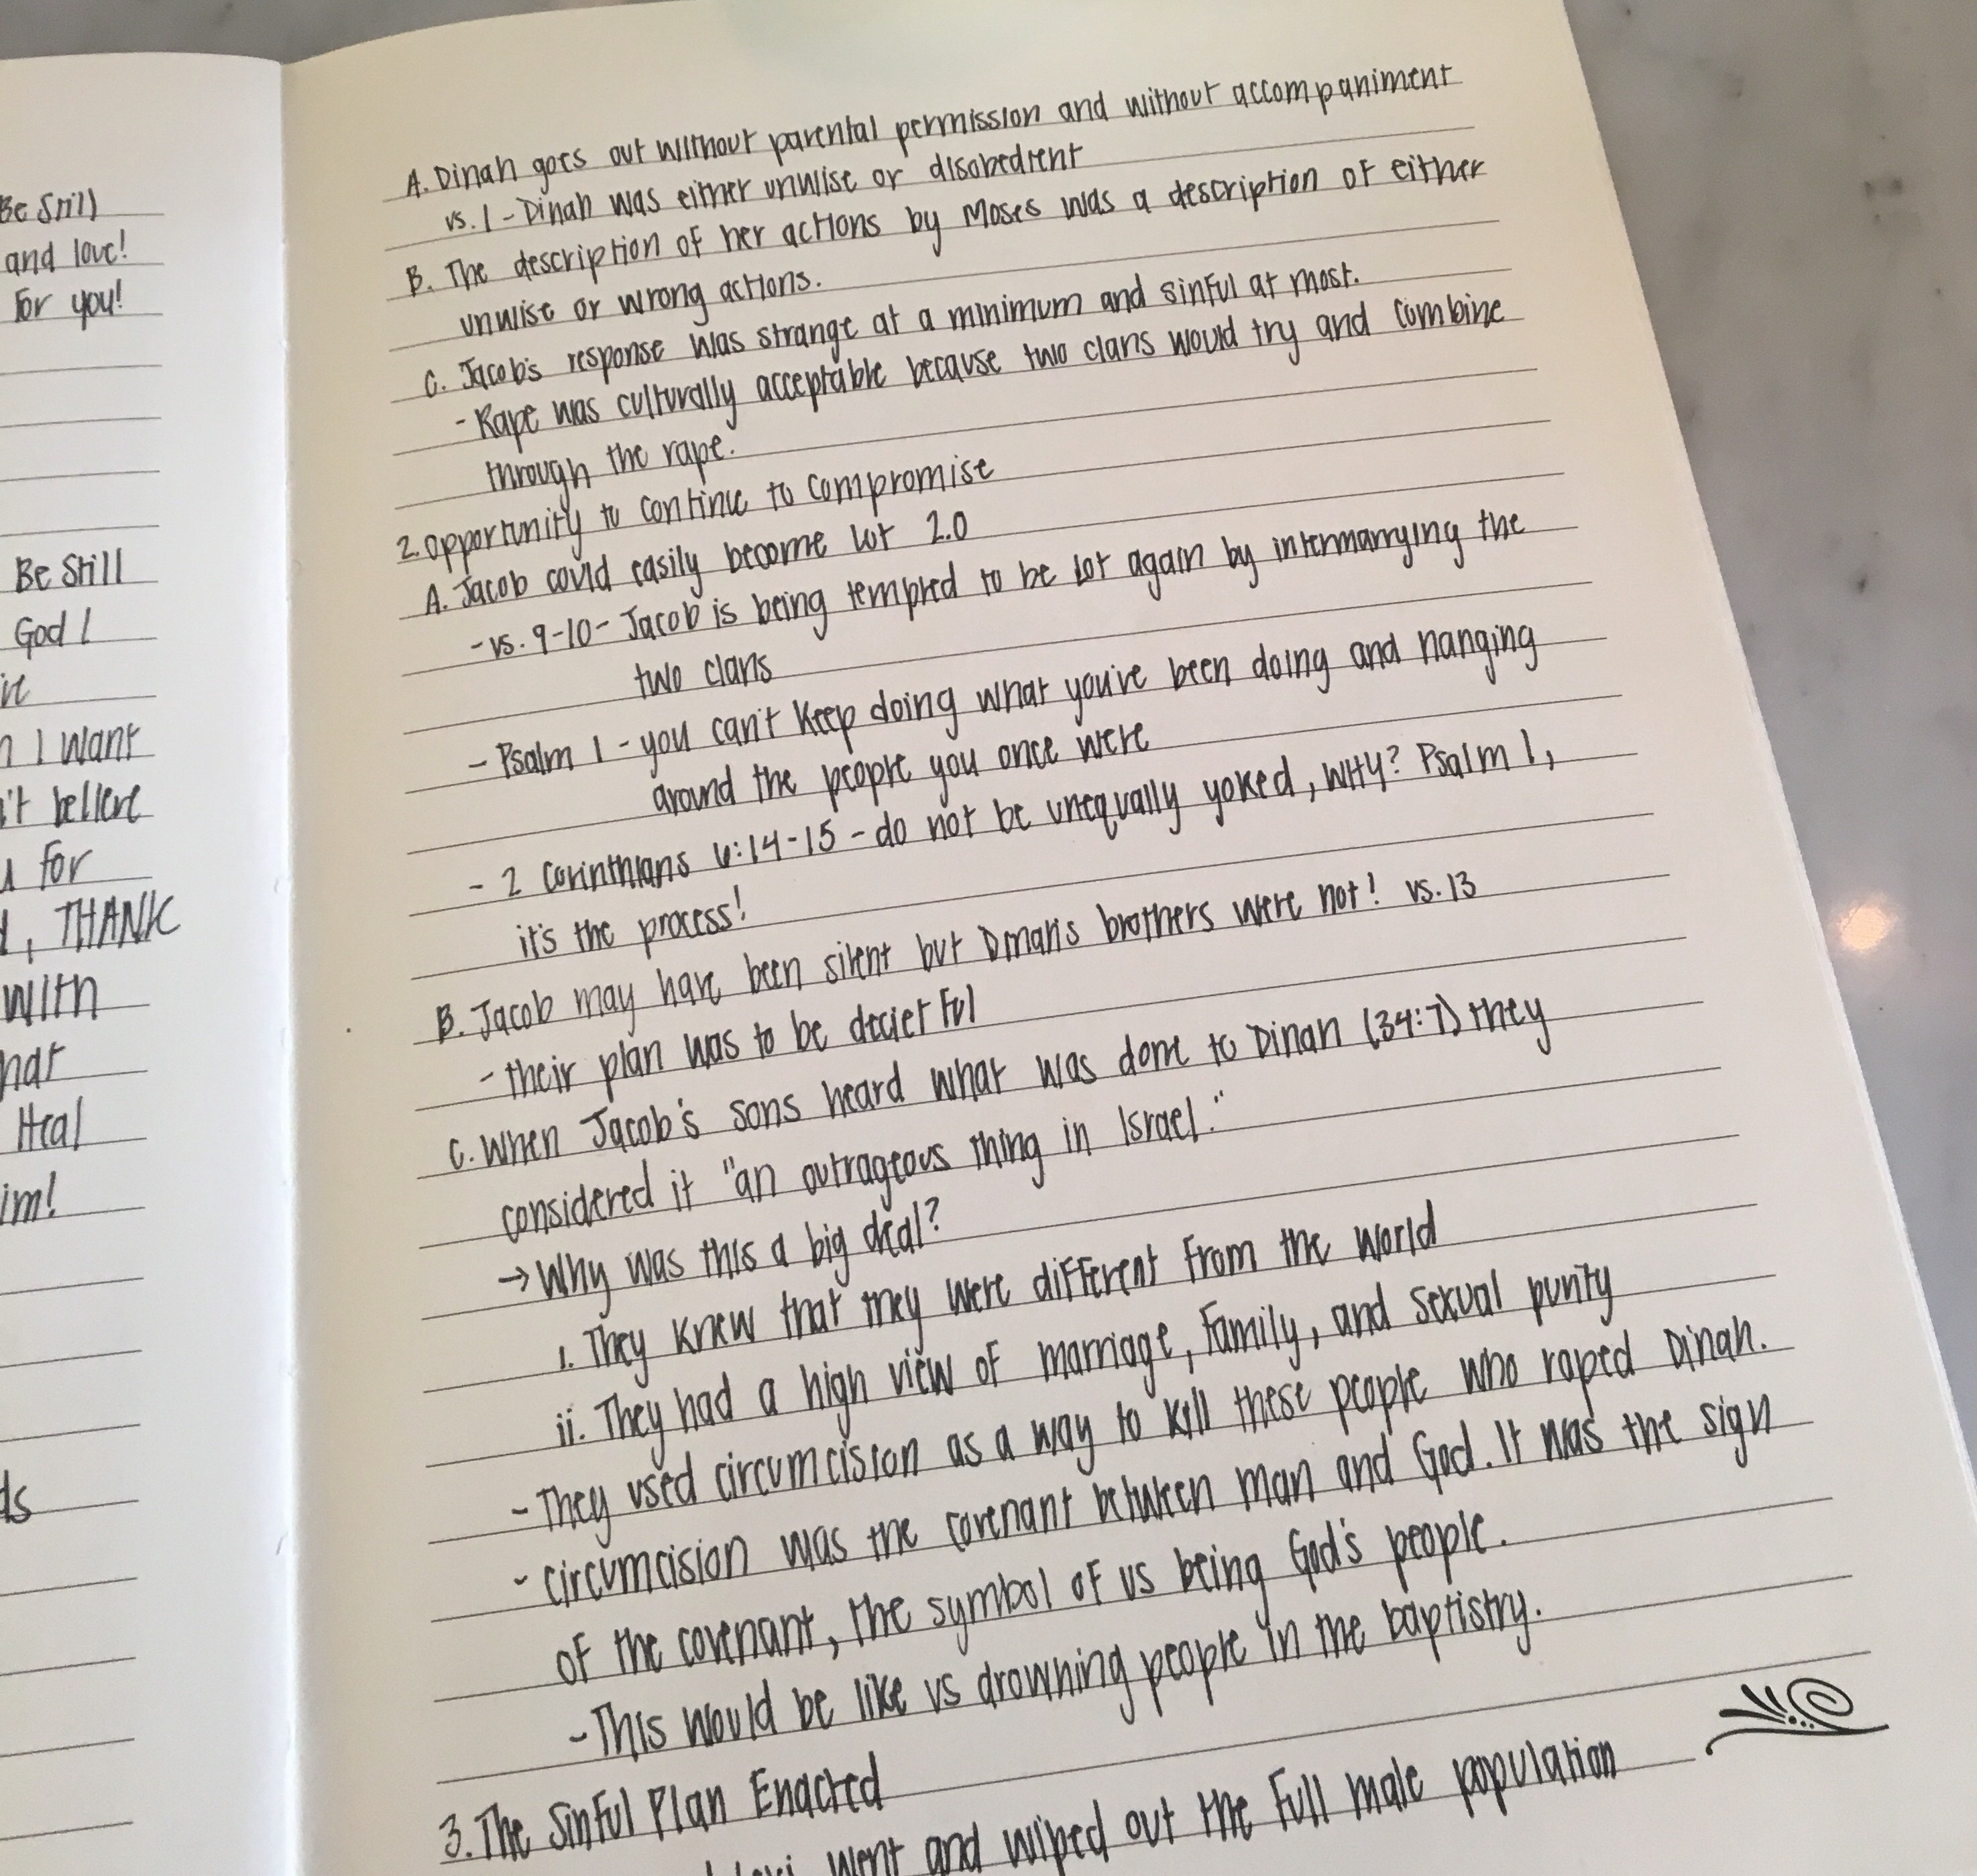 Be Still
and love!
For you!
Be Still
God I
I Want
believe
for
, THANK
with
Heal
A. Dinah goes out without parental permission and without accompaniment
vs. 1 - Dinah was either unwise or disobedient
B. The description of her actions by Moses was a description of either
unwise or wrong actions.
C. Jacob's response was strange at a minimum and sinful at most.
- Rape was culturally acceptable because two clans would try and combine
through the rape.
2. Opportunity to continue to compromise
A. Jacob could easily become Lot 2.0
- vs. 9-10 - Jacob is being tempted to be Lot again by intermarrying the
two clans
- Psalm 1 - you can't keep doing what you've been doing and hanging
around the people you once were
- 2 Corinthians 6:14-15 - do not be unequally yoked, WHY? Psalm 1,
it's the process!
B. Jacob may have been silent but Dinah's brothers were not! vs. 13
- their plan was to be decietful
C. When Jacob's sons heard what was done to Dinah (34:7) they
considered it "an outrageous thing in Israel."
→ Why was this a big deal?
i. They knew that they were different from the world
ii. They had a high view of marriage, family, and sexual purity
- They used circumcision as a way to kill these people who raped Dinah.
- circumcision was the covenant between man and God. It was the sign
of the covenant, the symbol of us being God's people.
- This would be like us drowning people in the baptistry.
3. The Sinful Plan Enacted
went and wiped out the full male population